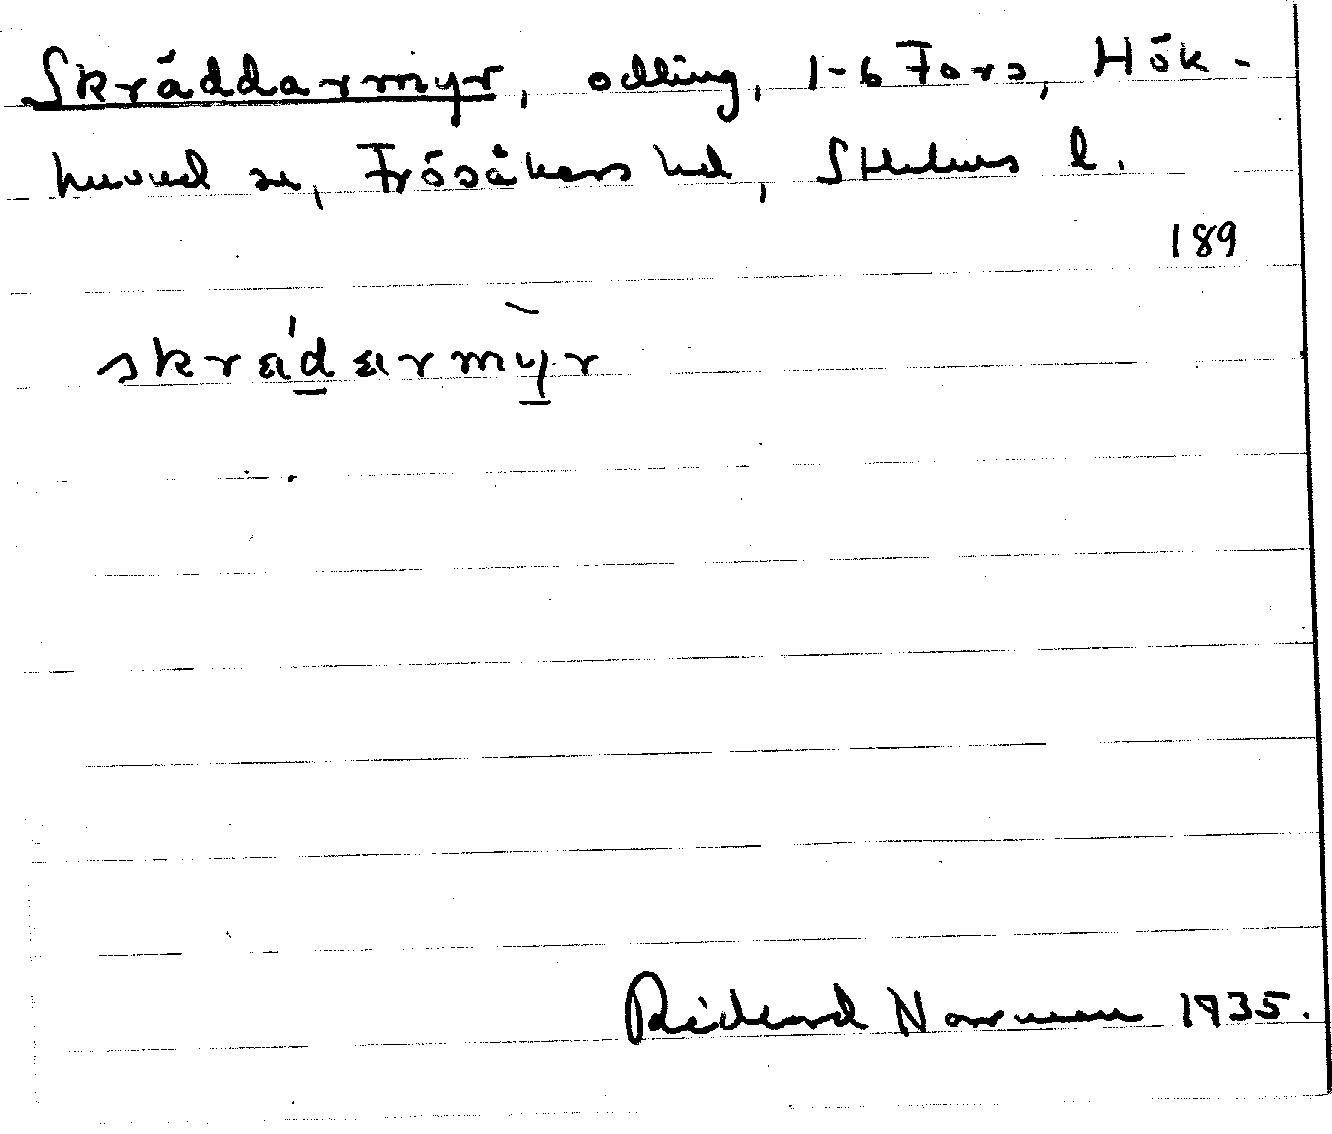 Skräddarmyr, odling, 1-6 Fors, Hök-
huvud sn, Frösåkers hd, Sthlms l.
189
skräd̲army̲r
Rickard Norrman 1935.